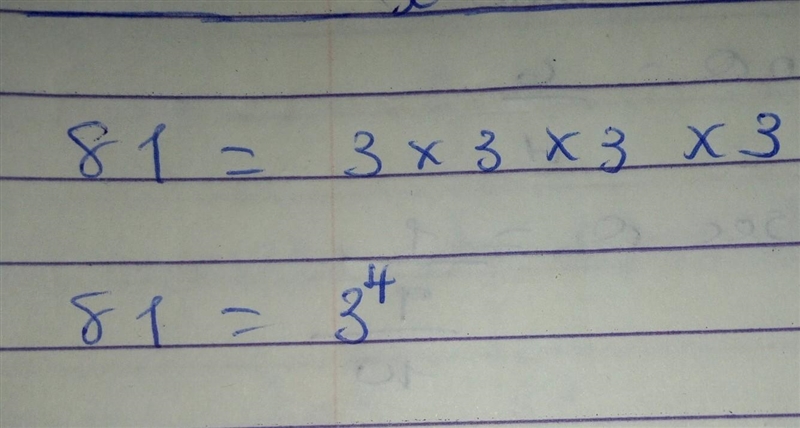 81 = 3 × 3 × 3 × 3
81 = 3⁴